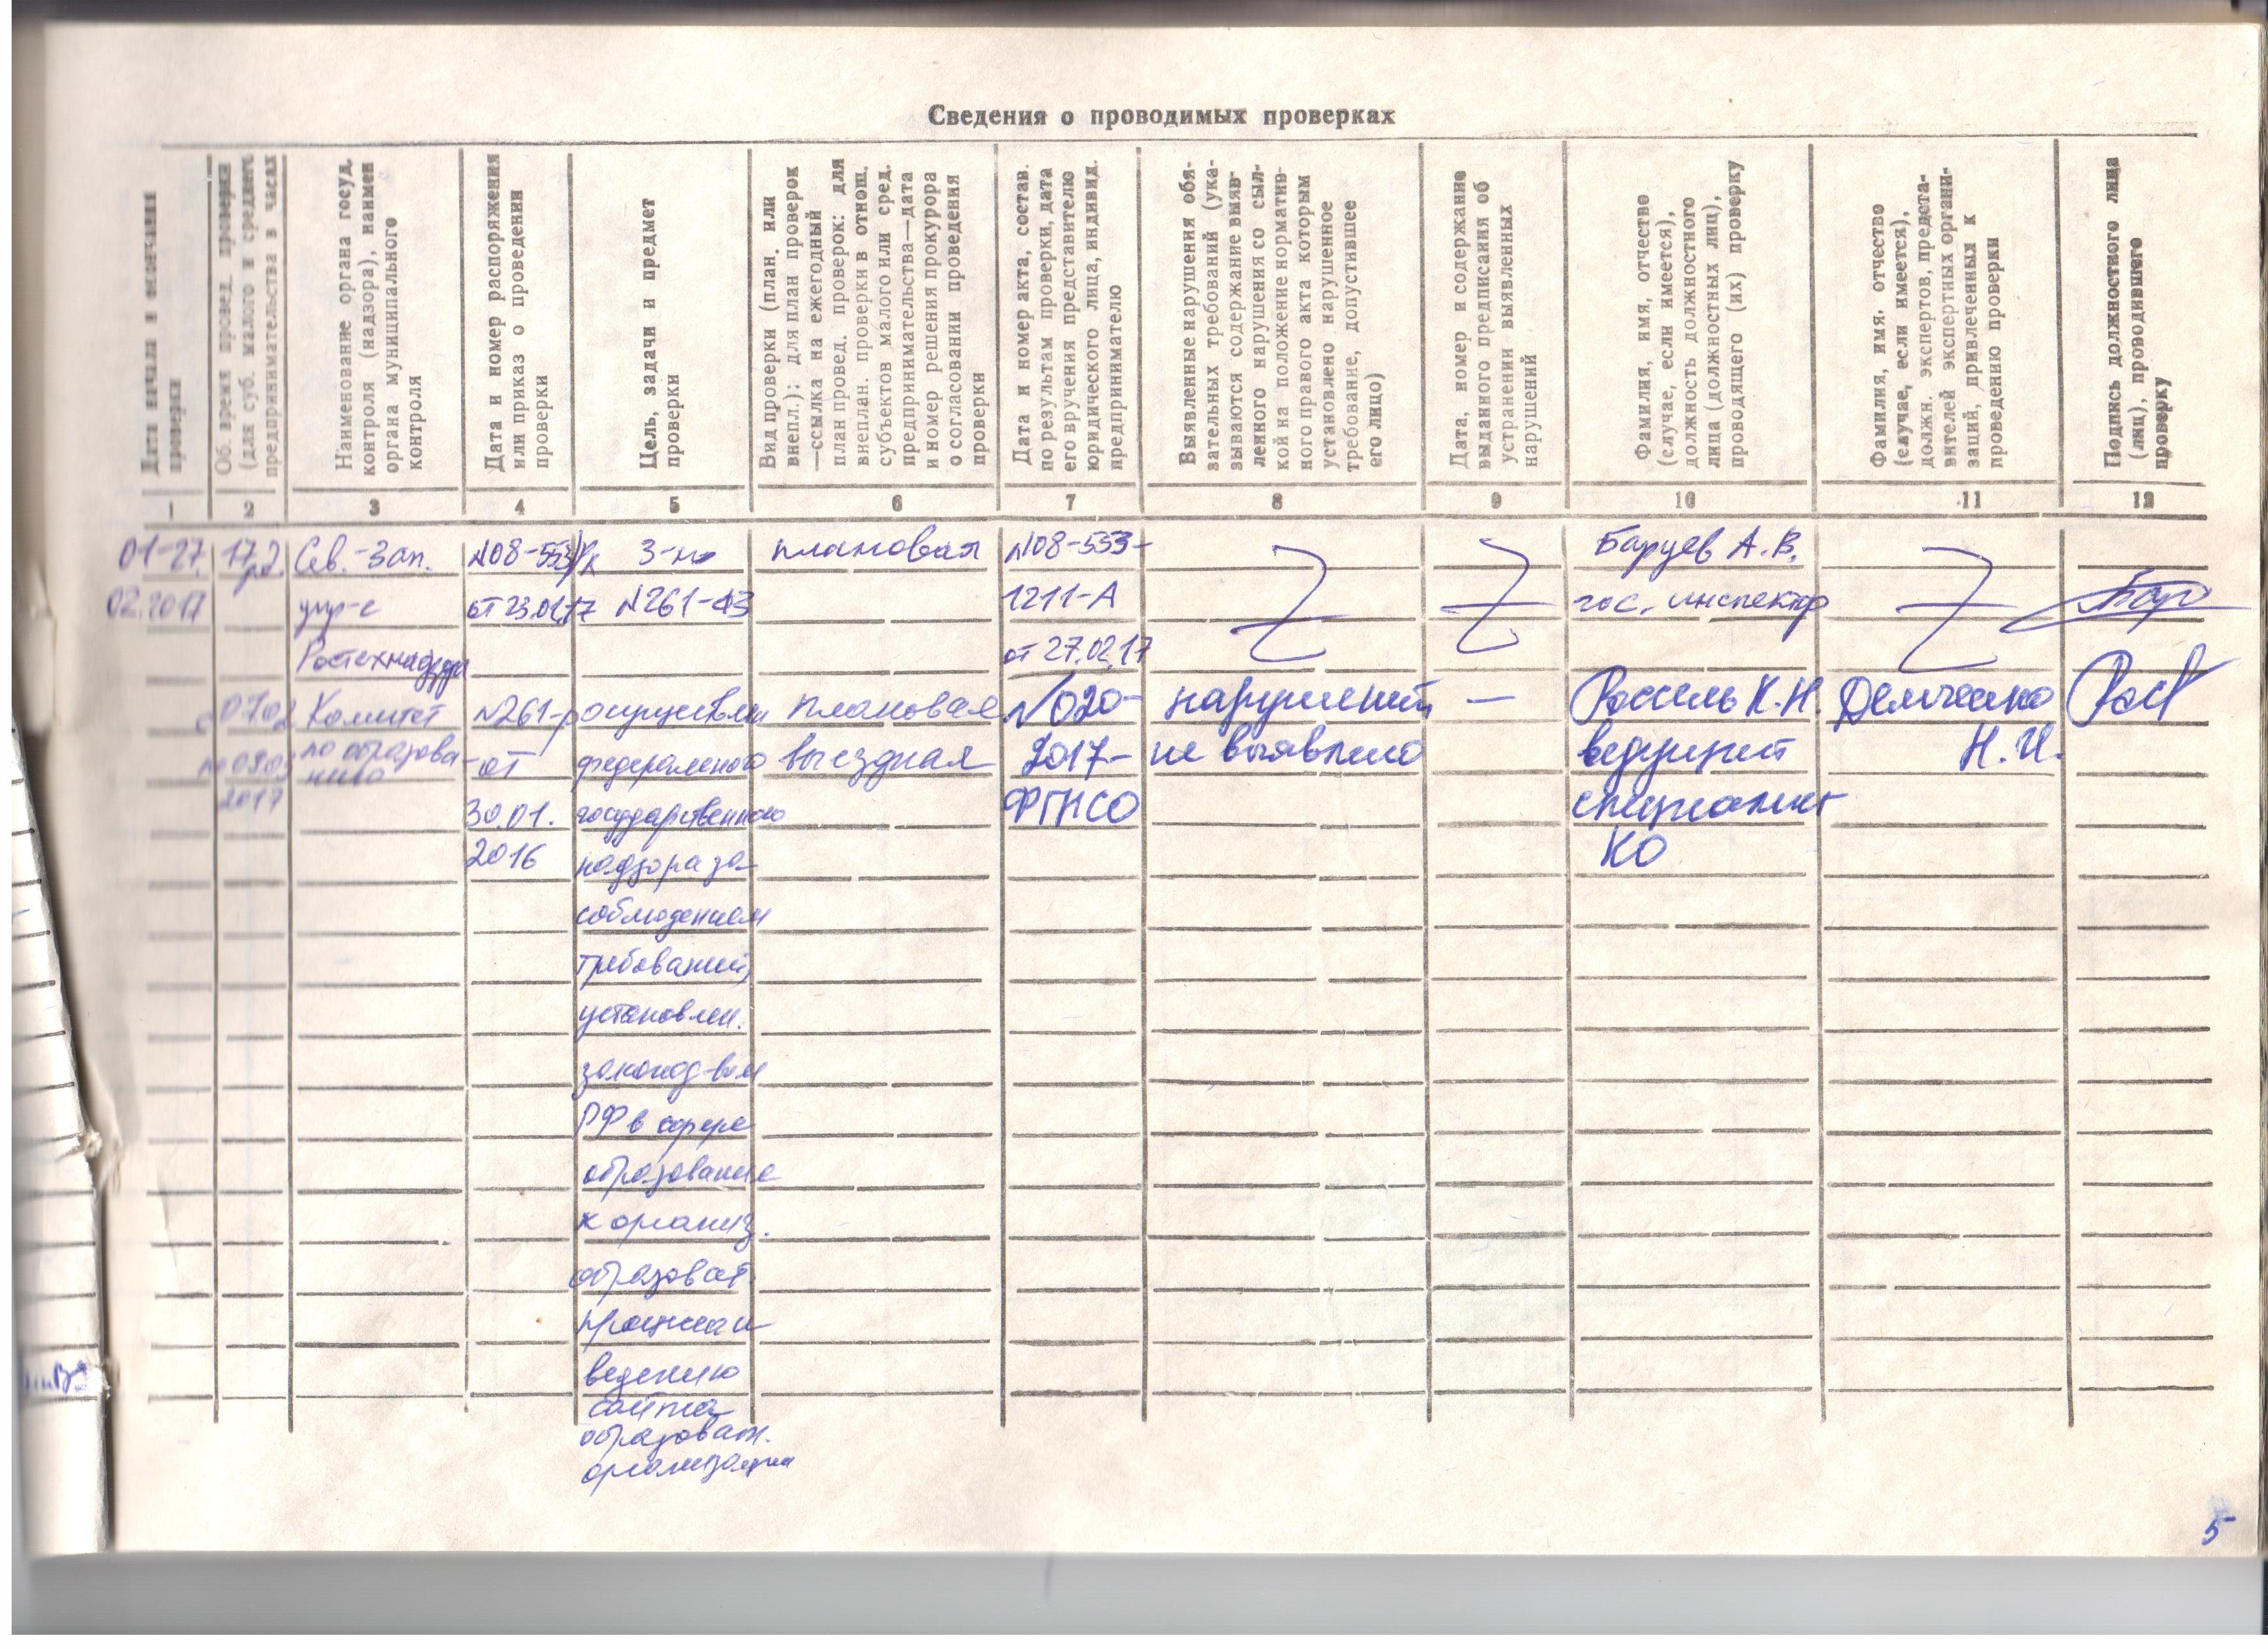 Сведения о проводимых проверках
Дата начала и окончания
проверки
Об. время провед. проверки
(для суб. малого и средмет.
предпринимательства в часах
Наименование органа госуд.
контроля (надзора), наимен
органа муниципального
контроля
Дата и номер распоряжения
или приказ о проведении
проверки
Цель, задачи и предмет
проверки
Вид проверки (план. или
внепл.): для план проверок
—ссылка на ежегодный
план провед. проверок: для
внеплан. проверки в отнош.
субъектов малого или сред.
предпринимательства—дата
и номер решения прокурора
о согласовании проведения
проверки
Дата и номер акта, состав.
по результам проверки, дата
его вручения представителю
юридического лица, индивид.
предпринимателю
Выявленные нарушения обя-
зательных требований (ука-
вываются содержание выяв-
ленного нарушения со сыл-
кой на положение норматив-
ного правого акта которым
установлено нарушенное
требование, допустившее
его лицо)
Дата, номер и содержание
выданного предписания об
устранении выявленных
нарушений
Фамилия, имя, отчество
(случае, если имеется),
должность должностного
лица (должностных лиц),
проводящего (их) проверку
Фамилия, имя, отчество
(случае, если имеется),
должн. экспертов, предста-
вителей экспертных органи-
заций, привлеченных к
проведению проверки
Подпись должностного лица
(лиц), проводившего
проверку
1 2 3 4 5 6 7 8 9 10 11 12
01-27.
02.2017
Сев.-Зап.
упр-е
Ростехнадзора
№08-553/Рк
от 23.01.17
З-н
№261-ФЗ
плановая
№08-553-
1211-А
от 27.02.17
Баруев А.В.
гос. инспектор
с 07.02
по 09.03
2017
Комитет
по образова-
нию
№261-р
от
30.01.
2016
осуществлен
федерального
государственного
надзора за
соблюдением
требований,
установлен.
законод-вом
РФ в сфере
образования
к организ.
образоват.
ведению
сайта
образоват.
организации
плановая
выездная
№020-
2017-
ФГНСО
нарушений
не выявлено
—
Россель К.Н.
ведущий
специалист
КО
Демченко
Н.И.
5